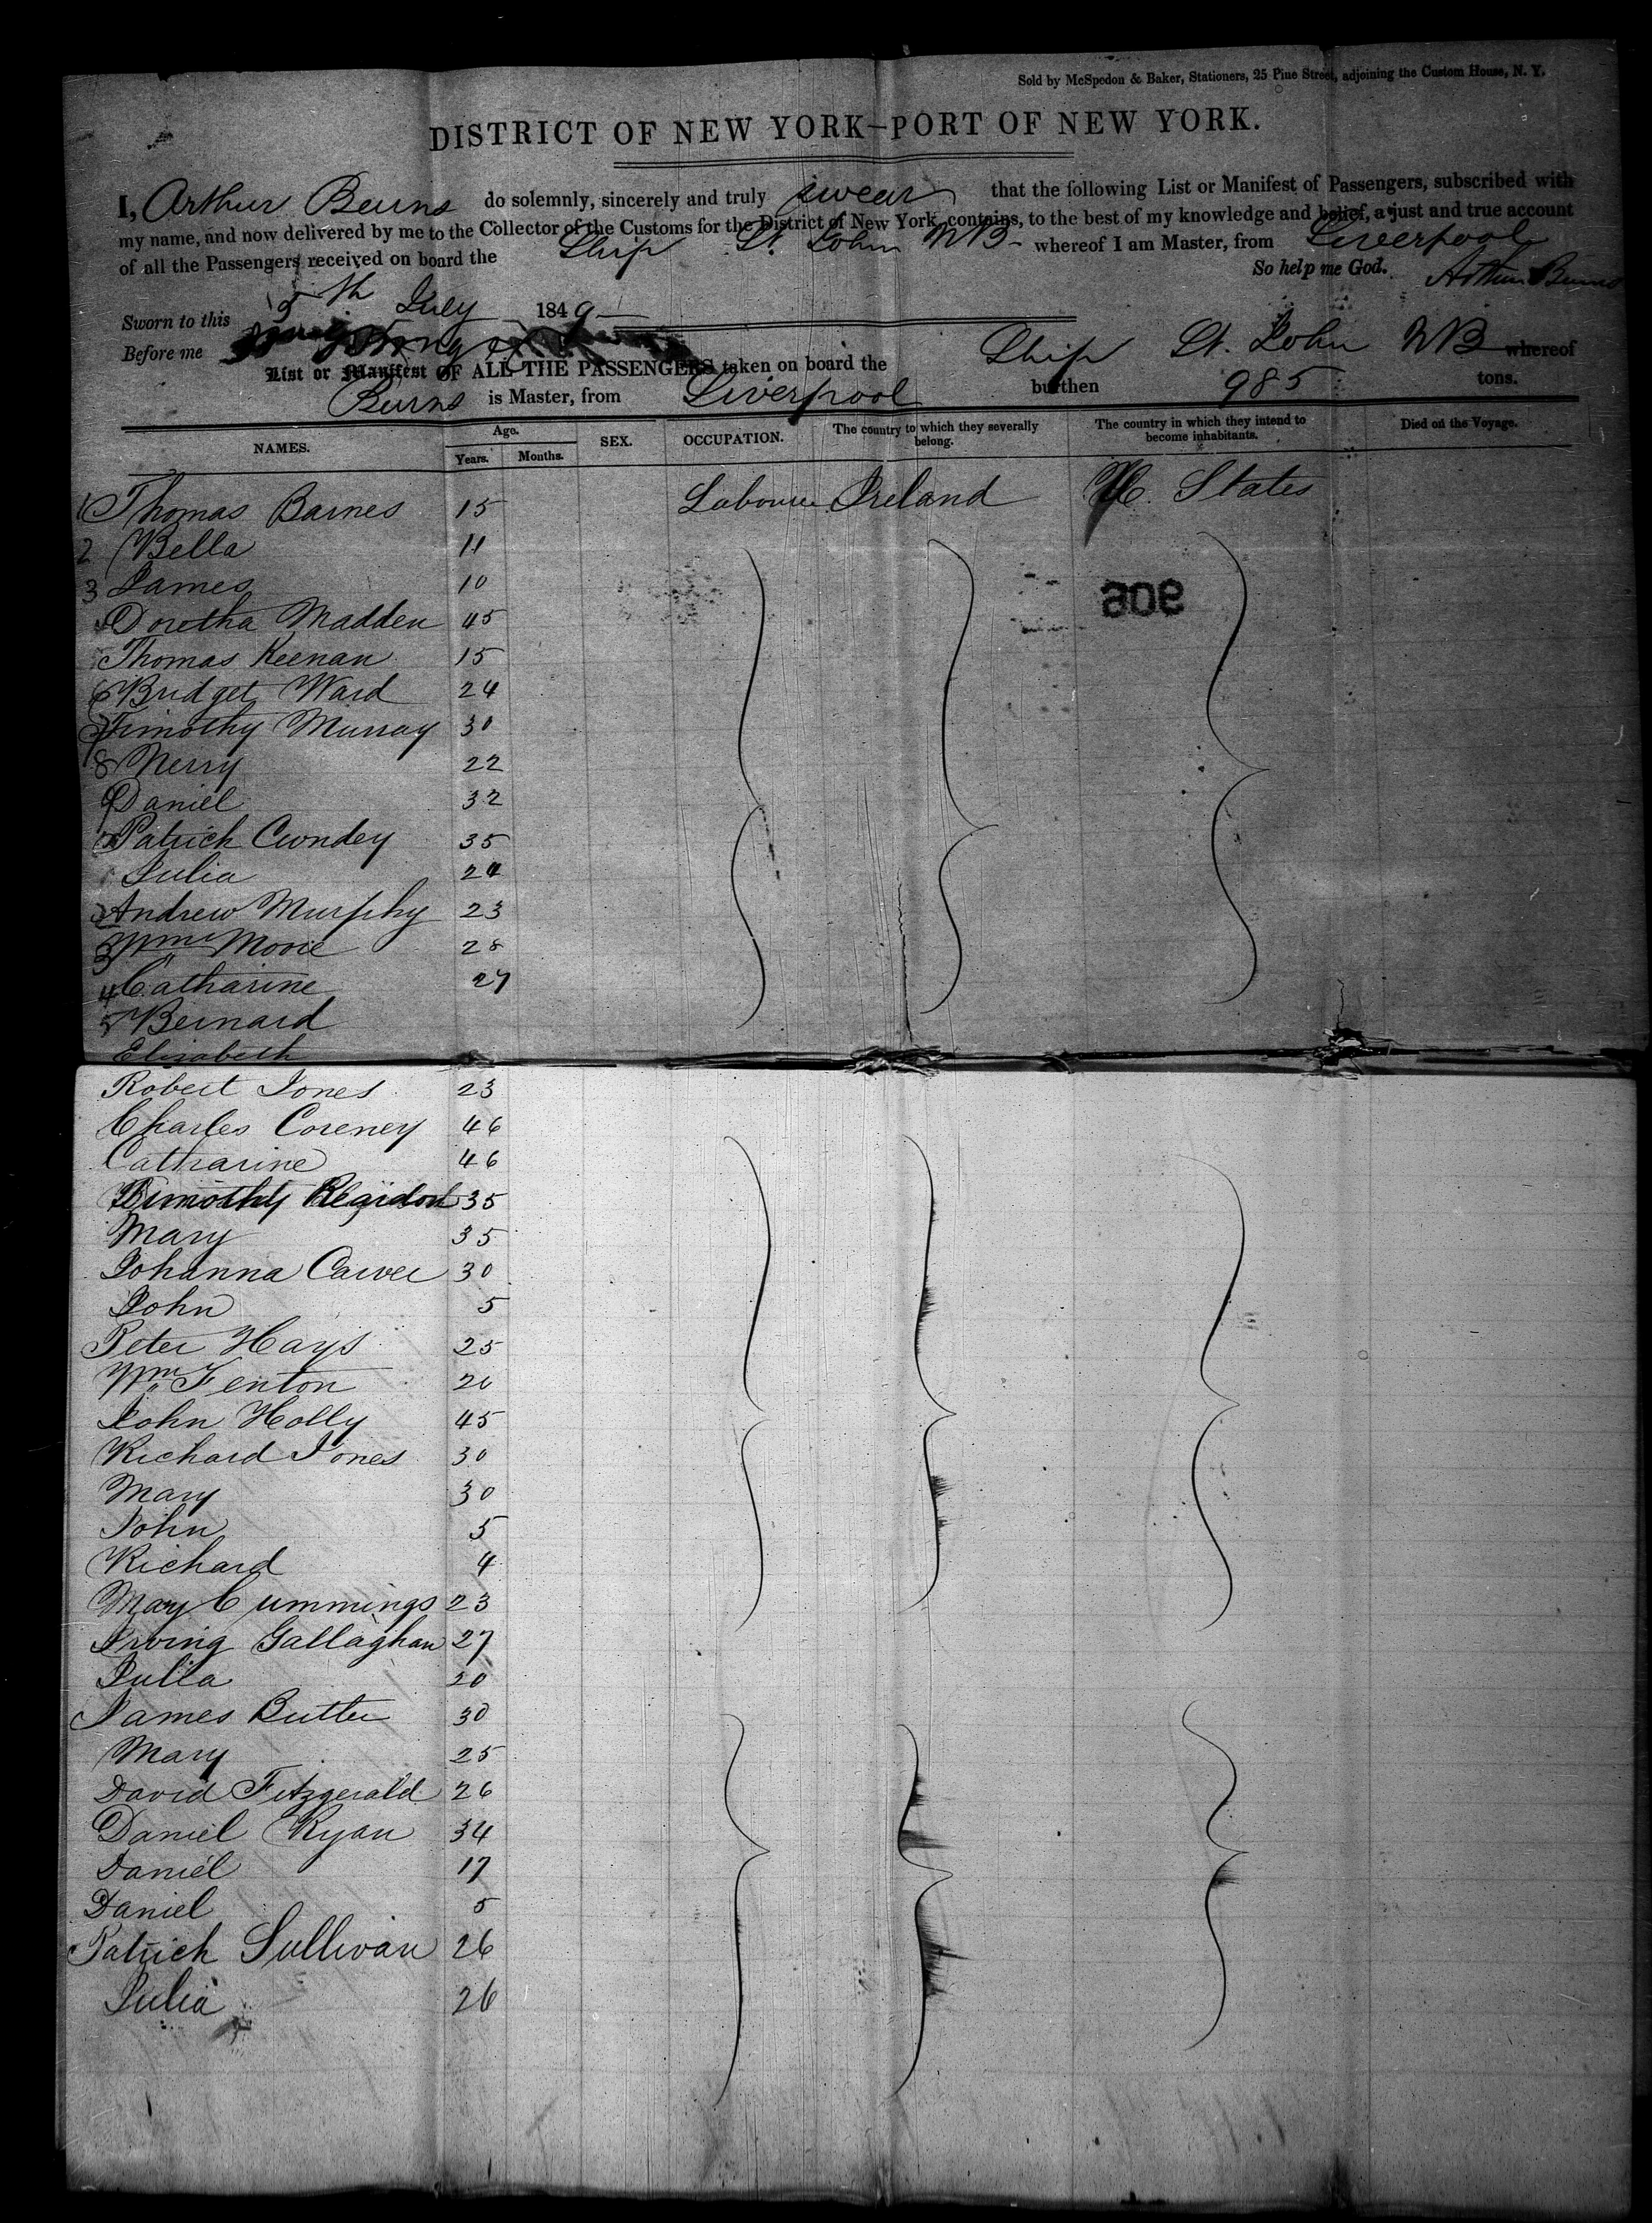 Sold by McSpedon & Baker, Stationers, 25 Pine Street, adjoining the Custom House, N. Y.
DISTRICT OF NEW YORK—PORT OF NEW YORK.
I, Arthur Burns do solemnly, sincerely and truly swear that the following List or Manifest of Passengers, subscribed with
my name, and now delivered by me to the Collector of the Customs for the District of New York, contains, to the best of my knowledge and belief, a just and true account
of all the Passengers received on board the Ship St. John NB whereof I am Master, from Liverpool
So help me God. Arthur Burns
Sworn to this 5th July 1849
Before me
List or Manifest OF ALL THE PASSENGERS taken on board the Ship St. John NB whereof
Burns is Master, from Liverpool burthen 985 tons.
NAMES. Age. Years. Months. SEX. OCCUPATION. The country to which they severally belong. The country in which they intend to become inhabitants. Died on the Voyage.
1 Thomas Barnes 15 Labourer Ireland U. States
2 Bella 11
3 James 10
4 Dorotha Madden 45
Thomas Keenan 15
6 Bridget Ward 24
7 Timothy Murray 30
8 Nerry 22
9 Daniel 32
Patrick Cundey 35
Julia 24
2 Andrew Murphy 23
3 Wm Moore 28
4 Catharine 27
5 Bernard
Elisabeth
Robert Jones 23
Charles Coreney 46
Catharine 46
Timothy 35
Mary 35
Johanna Carver 30
John 5
Peter Hays 25
Wm Fenton 20
John Holly 45
Richard Jones 30
Mary 30
John 5
Richard 4
Mary Cummings 23
Irving Gallaghan 27
Julia 20
James Butler 30
Mary 25
David Fitzgerald 26
Daniel Ryan 34
Daniel 17
Daniel 5
Patrick Sullivan 26
Julia 26